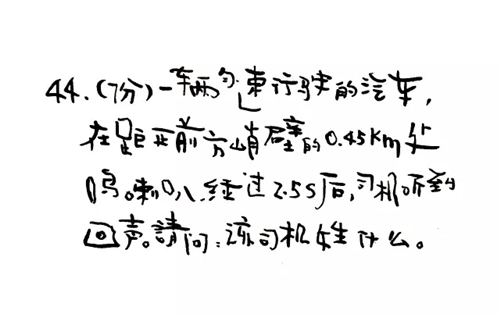 44.(7分)一车辆匀速行驶的汽车，
在距正前方峭壁的0.45km处
鸣喇叭,经过2.5S后,司机听到
回声。請问:该司机姓什么。